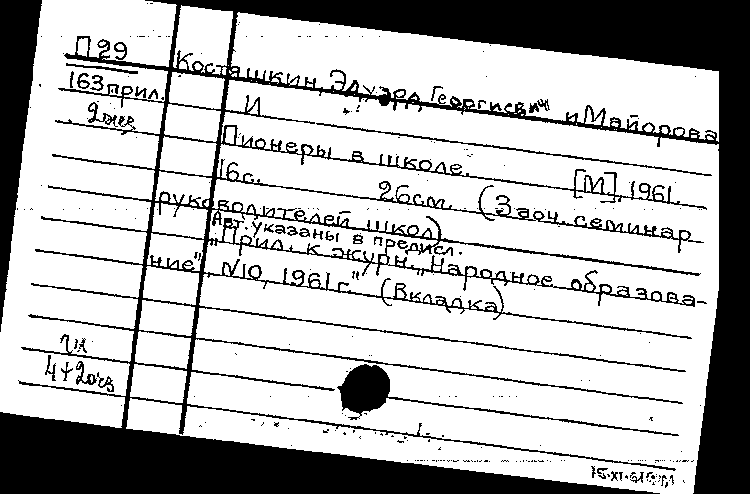 П29
Косташкин, Эдуард Георгиевич и Майорова
163 прил.
И
2 экз
Пионеры в школе. [М], 1961.
16с. 26см. (Заоч. семинар
руководителей школ)
Авт. указаны в предисл.
„Прил. к журн. „Народное образова-
ние", N10, 1961г." (Вкладка)
чи
15·XI·61